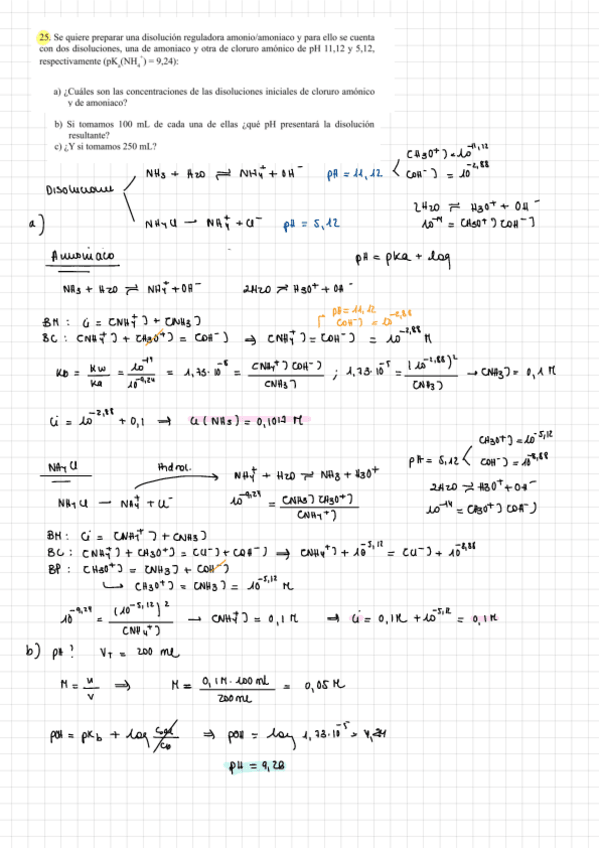 25. Se quiere preparar una disolución reguladora amonio/amoniaco y para ello se cuenta
con dos disoluciones, una de amoniaco y otra de cloruro amónico de pH 11,12 y 5,12,
respectivamente (pKa(NH4+) = 9,24):
a) ¿Cuáles son las concentraciones de las disoluciones iniciales de cloruro amónico
y de amoniaco?
b) Si tomamos 100 mL de cada una de ellas ¿qué pH presentará la disolución
resultante?
c) ¿Y si tomamos 250 mL?
Disoluciones
NH3 + H2O ⇌ NH4+ + OH- pH = 11,12 [H3O+] = 10^-11,12
[OH-] = 10^-2,88
NH4Cl → NH4+ + Cl- pH = 5,12
2H2O ⇌ H3O+ + OH-
10^-14 = [H3O+][OH-]
a)
Amoniaco
pH = pKa + log
NH3 + H2O ⇌ NH4+ + OH- 2H2O ⇌ H3O+ + OH-
pH = 11,12
[OH-] = 10^-2,88
BM: Ci = [NH4+] + [NH3]
BC: [NH4+] + [H3O+] = [OH-] ⇒ [NH4+] = [OH-] = 10^-2,88 M
Kb = Kw/Ka = 10^-14/10^-9,24 = 1,73·10^-5 = [NH4+][OH-]/[NH3] ; 1,73·10^-5 = (10^-2,88)^2/[NH3] → [NH3] = 0,1 M
Ci = 10^-2,88 + 0,1 ⇒ Ci (NH3) = 0,1013 M
NH4Cl
Hidrol.
NH4+ + H2O ⇌ NH3 + H3O+
pH = 5,12 [H3O+] = 10^-5,12
[OH-] = 10^-8,88
2H2O ⇌ H3O+ + OH-
10^-14 = [H3O+][OH-]
NH4Cl → NH4+ + Cl-
10^-9,24 = [NH3][H3O+]/[NH4+]
BM: Ci = [NH4+] + [NH3]
BC: [NH4+] + [H3O+] = [Cl-] + [OH-] ⇒ [NH4+] + 10^-5,12 = [Cl-] + 10^-8,88
BP: [H3O+] = [NH3] + [OH-]
↳ [H3O+] = [NH3] = 10^-5,12 M
10^-9,24 = (10^-5,12)^2/[NH4+] → [NH4+] = 0,1 M ⇒ Ci = 0,1 M + 10^-5,12 = 0,1 M
b) pH? VT = 200 ml
M = n/V ⇒ M = 0,1 M · 100 mL/200 mL = 0,05 M
pOH = pKb + log Csal/Cb ⇒ pOH = log 1,73·10^-5 = 4,74
pH = 9,26